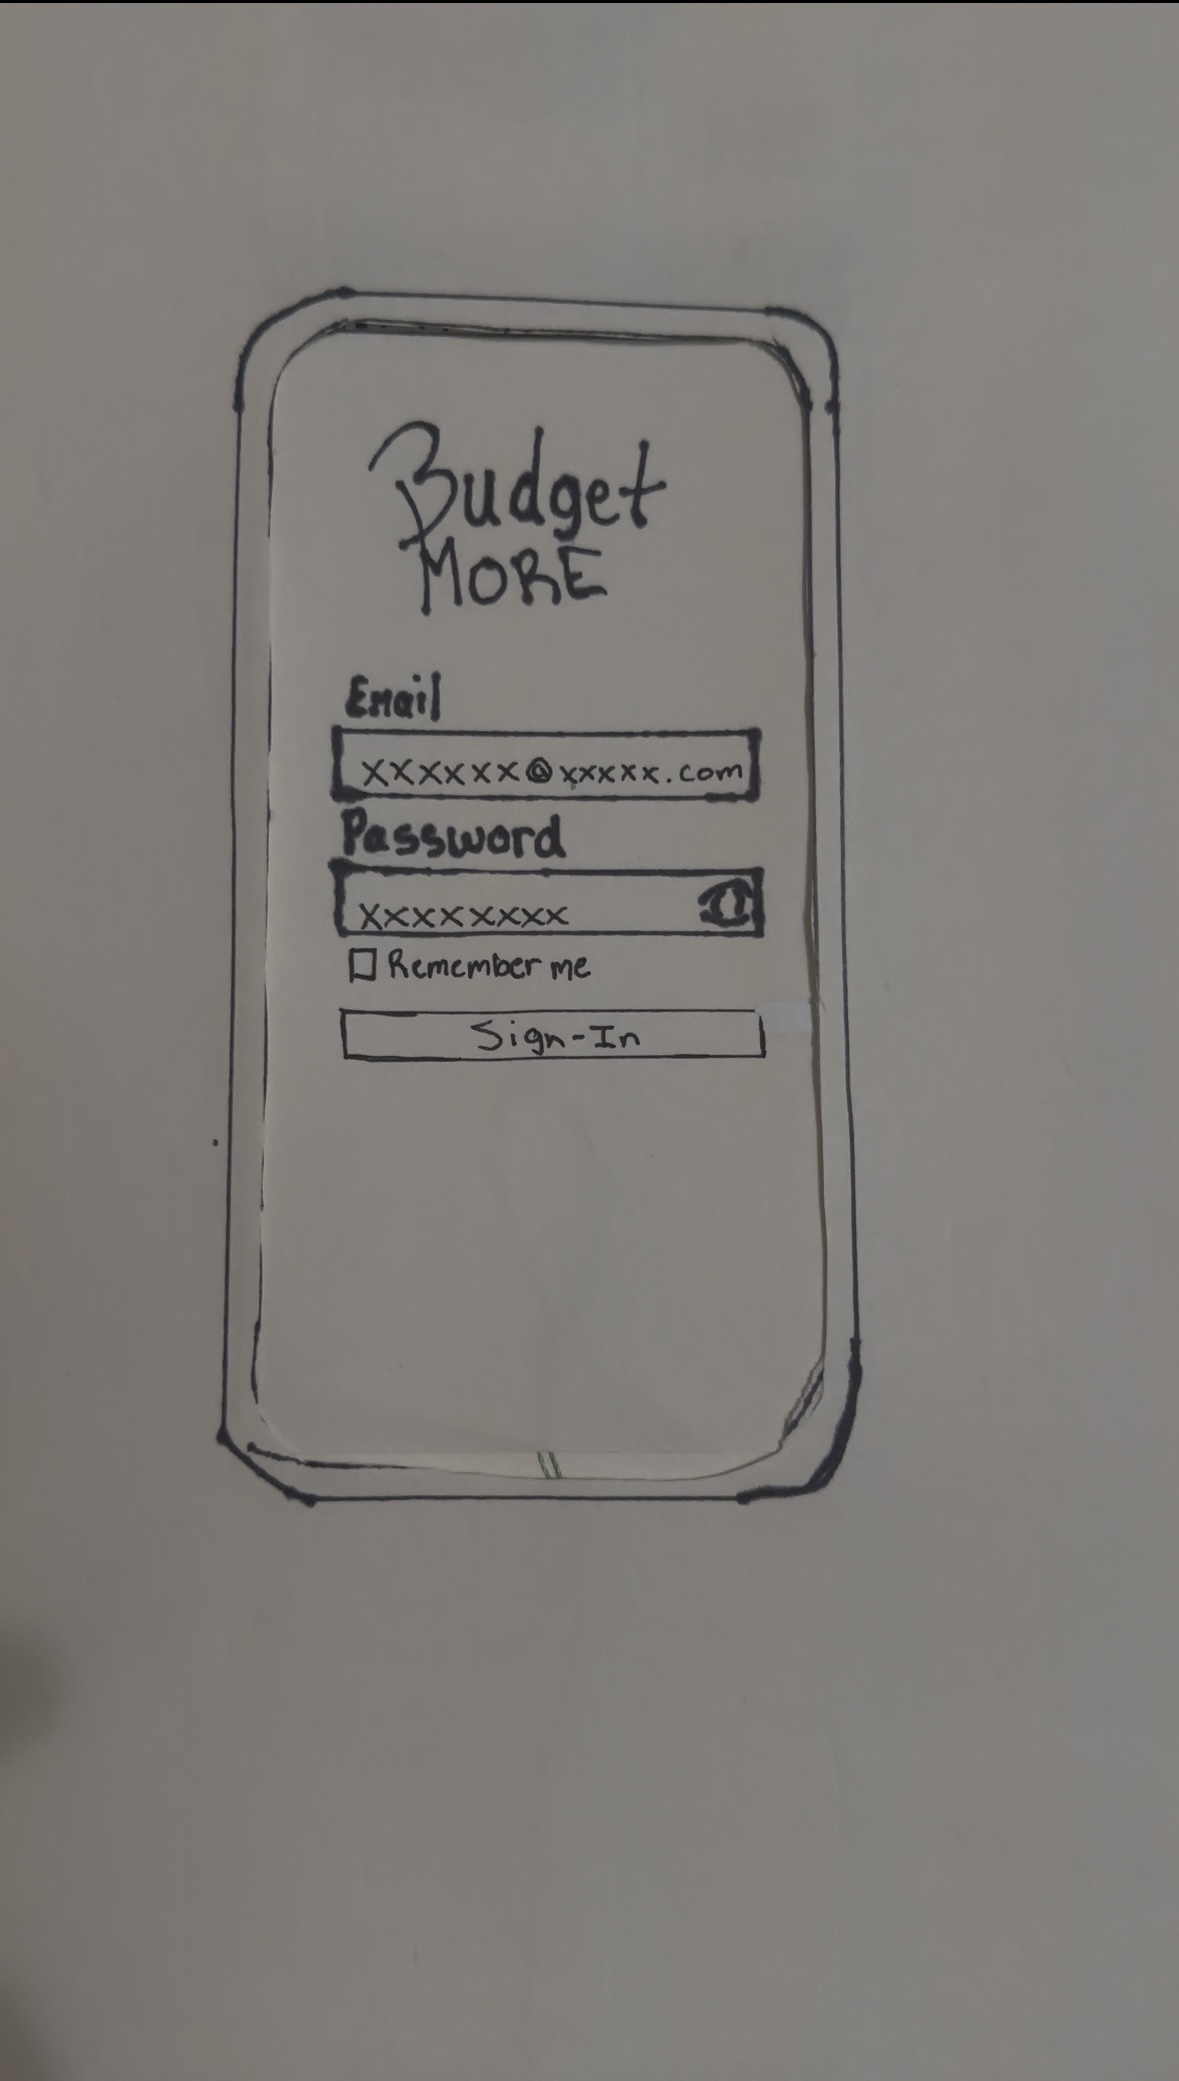 Budget
MORE
Email
xxxxxx@xxxxx.com
Password
xxxxxxxx
Remember me
Sign-In